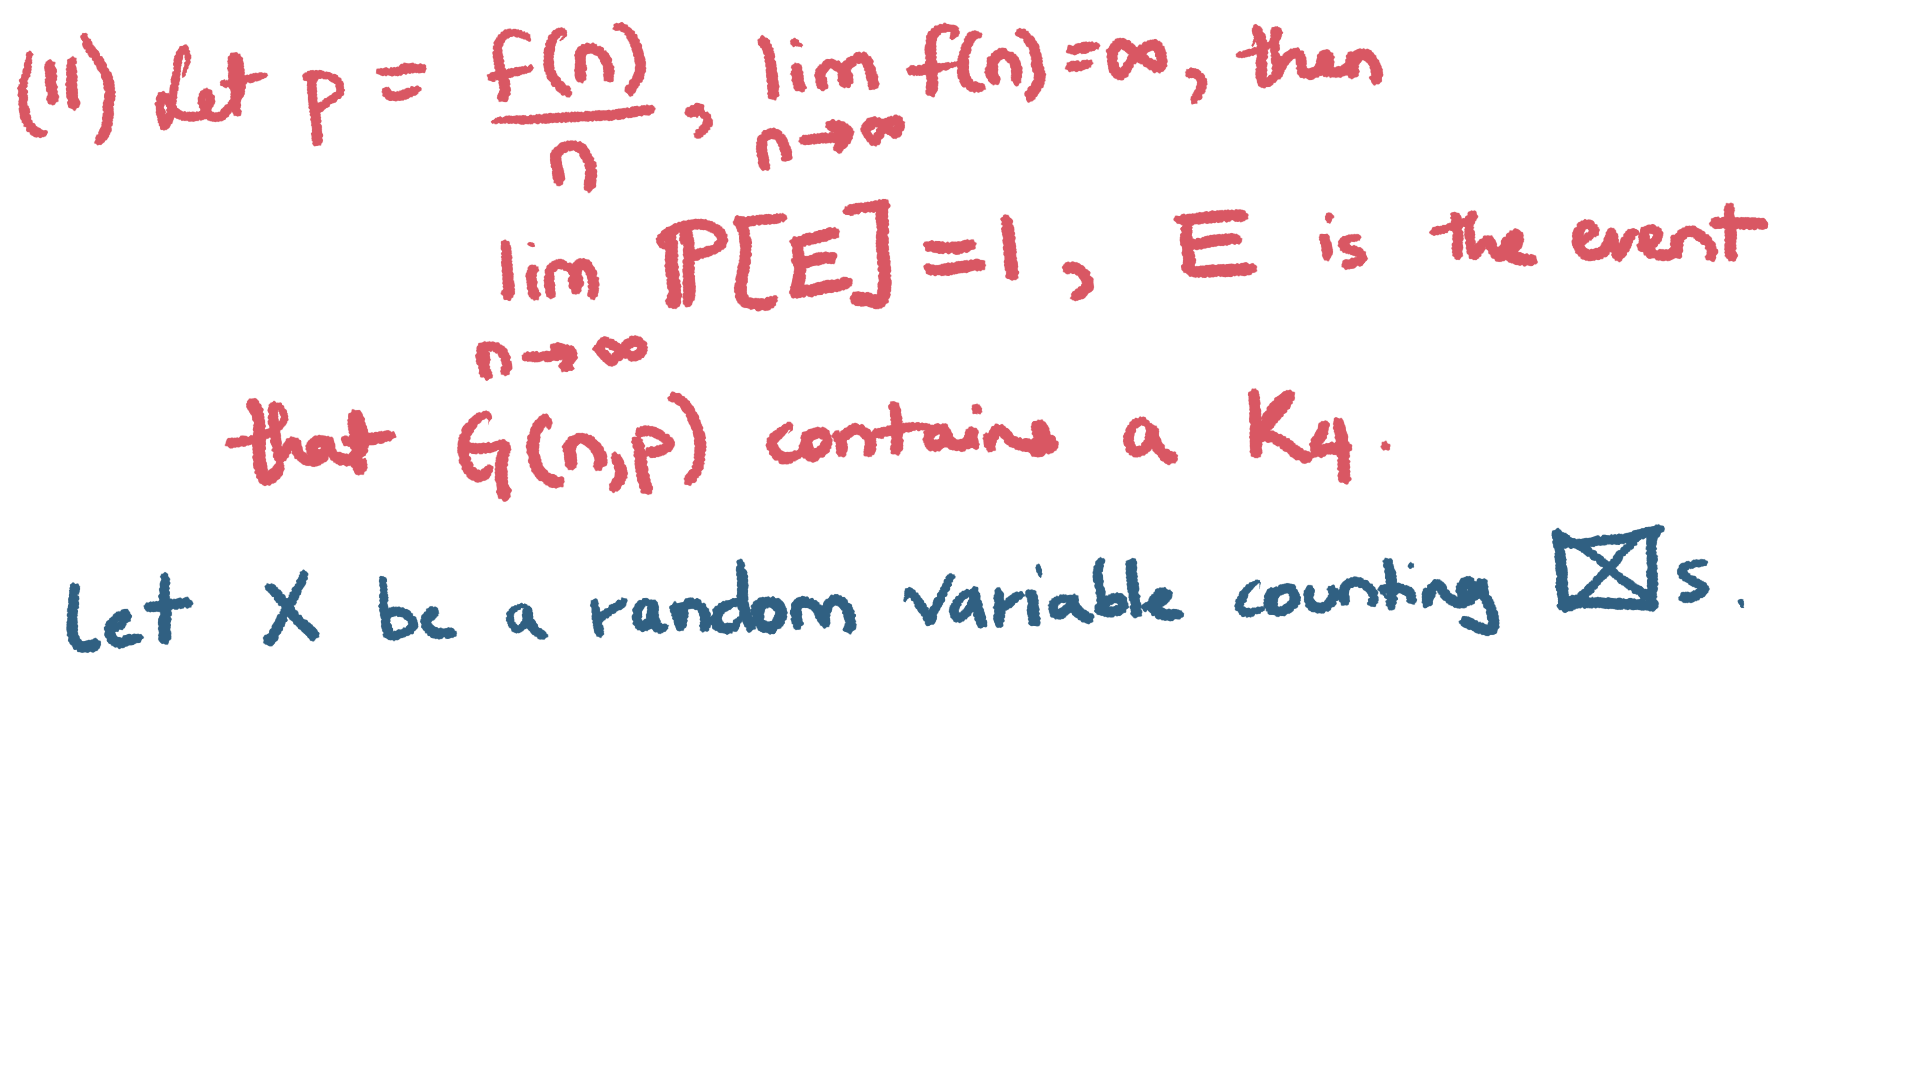 (11) Let p = f(n)/n, lim n→∞ f(n) = ∞, then
lim n→∞ ℙ[E] = 1, E is the event
that G(n,p) contains a K4.
Let X be a random variable counting ⊠s.